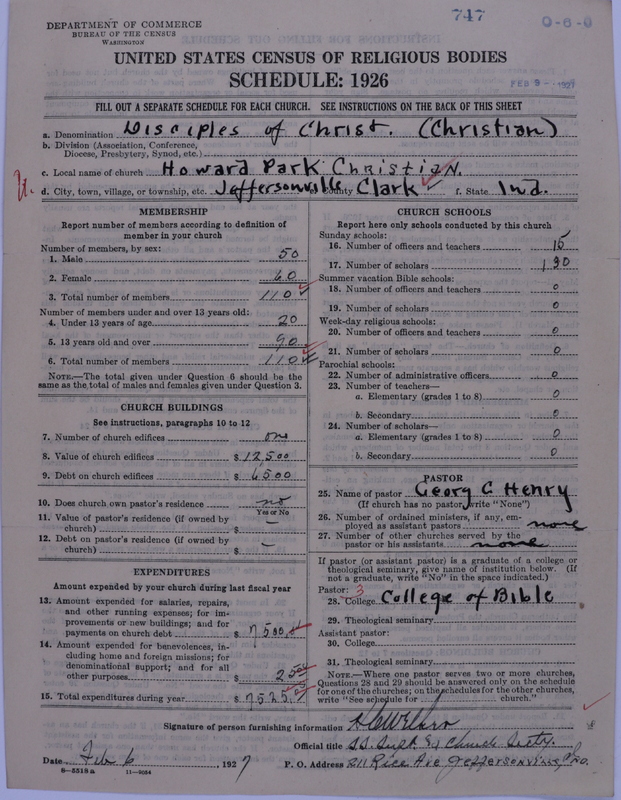 747
O-6-0
DEPARTMENT OF COMMERCE
BUREAU OF THE CENSUS
WASHINGTON
UNITED STATES CENSUS OF RELIGIOUS BODIES
SCHEDULE: 1926
FEB 9 - 1927
FILL OUT A SEPARATE SCHEDULE FOR EACH CHURCH. SEE INSTRUCTIONS ON THE BACK OF THIS SHEET
a. Denomination Disciples of Christ. (Christian)
b. Division (Association, Conference,
Diocese, Presbytery, Synod, etc.)
c. Local name of church Howard Park Christian.
d. City, town, village, or township, etc. Jeffersonville e. County Clark f. State Ind.
MEMBERSHIP
Report number of members according to definition of
member in your church
Number of members, by sex:
1. Male 50
2. Female 60
3. Total number of members 110
Number of members under and over 13 years old:
4. Under 13 years of age 20
5. 13 years old and over 90
6. Total number of members 110
NOTE.—The total given under Question 6 should be
same as the total of males and females given under Question 3.
CHURCH BUILDINGS
See instructions, paragraphs 10 to 12
7. Number of church edifices one
8. Value of church edifices $12,500
9. Debt on church edifices $ 6500
10. Does church own pastor's residence no
Yes or No
11. Value of pastor's residence (if owned by
church) $ —
12. Debt on pastor's residence (if owned by
church) $ —
EXPENDITURES
Amount expended by your church during last fiscal year
13. Amount expended for salaries, repairs,
and other running expenses; for im-
provements or new buildings; and for
payments on church debt $ 7500
14. Amount expended for benevolences, in-
cluding home and foreign missions; for
denominational support; and for all
other purposes $ 25
15. Total expenditures during year $ 7525
CHURCH SCHOOLS
Report here only schools conducted by this church
Sunday schools:
16. Number of officers and teachers 15
17. Number of scholars 130
Summer vacation Bible schools:
18. Number of officers and teachers 0
19. Number of scholars 0
Week-day religious schools:
20. Number of officers and teachers 0
21. Number of scholars 0
Parochial schools:
22. Number of administrative officers 0
23. Number of teachers—
a. Elementary (grades 1 to 8) 0
b. Secondary 0
24. Number of scholars—
a. Elementary (grades 1 to 8) 0
b. Secondary 0
PASTOR
25. Name of pastor Georg C Henry
(If church has no pastor, write "None")
26. Number of ordained ministers, if any, em-
ployed as assistant pastors none
27. Number of other churches served by the
pastor or his assistants none
If pastor (or assistant pastor) is a graduate of a college or
theological seminary, give name of institution below. (If
not a graduate, write "No" in the space indicated.)
Pastor: 3
28. College College of Bible
29. Theological seminary
Assistant pastor:
30. College
31. Theological seminary
NOTE.—Where one pastor serves two or more churches,
Questions 28 and 29 should be answered only on the schedule
for one of the churches; on the schedules for the other churches,
write "See schedule for church."
Signature of person furnishing information
Official title S.S. Supt. & Church Secty.
Date Feb 6, 1927 P. O. Address 211 Rice Ave Jeffersonville, Ind.
8—5518a 11—9054